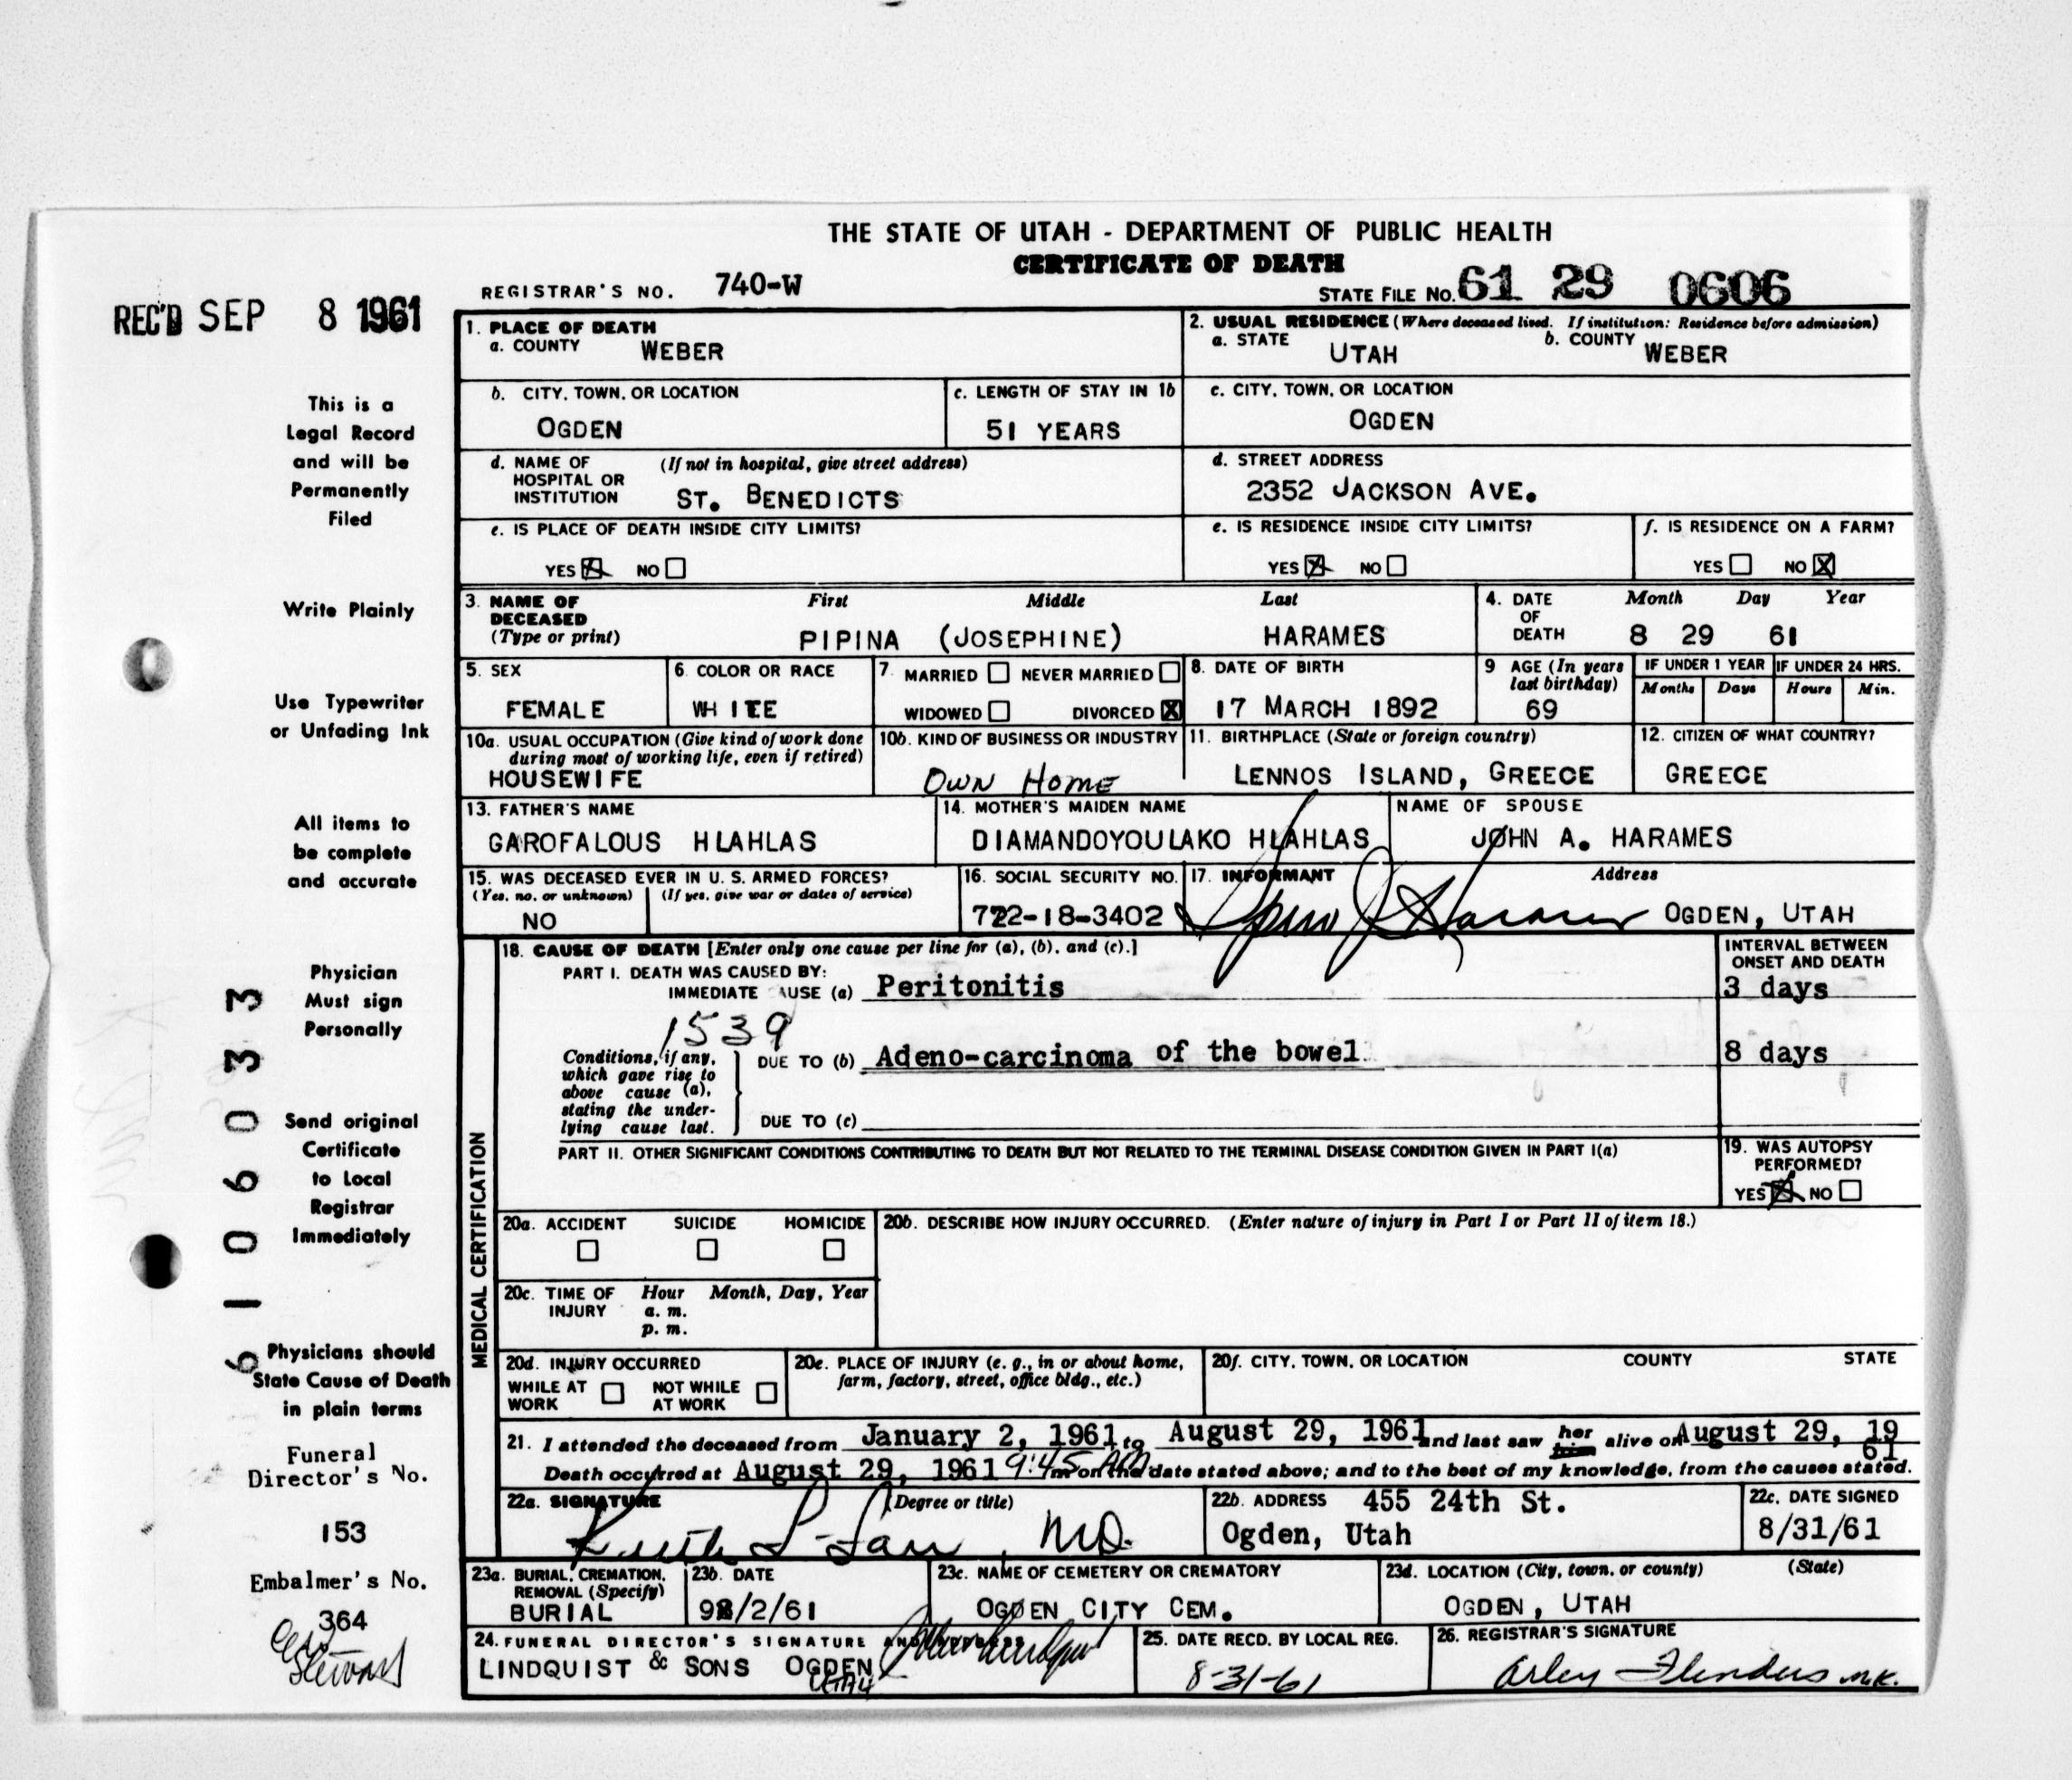 THE STATE OF UTAH - DEPARTMENT OF PUBLIC HEALTH
CERTIFICATE OF DEATH
REGISTRAR'S NO. 740-W
STATE FILE NO. 61 29 0606
REC'D SEP 8 1961
1. PLACE OF DEATH
a. COUNTY WEBER
2. USUAL RESIDENCE (Where deceased lived. If institution: Residence before admission)
a. STATE UTAH b. COUNTY WEBER
b. CITY, TOWN, OR LOCATION
OGDEN
c. LENGTH OF STAY IN 1b
51 YEARS
c. CITY, TOWN, OR LOCATION
OGDEN
d. NAME OF HOSPITAL OR INSTITUTION (If not in hospital, give street address)
ST. BENEDICTS
d. STREET ADDRESS
2352 JACKSON AVE.
e. IS PLACE OF DEATH INSIDE CITY LIMITS?
YES NO
e. IS RESIDENCE INSIDE CITY LIMITS?
YES NO
f. IS RESIDENCE ON A FARM?
YES NO
3. NAME OF DECEASED (Type or print)
First Middle Last
PIPINA (JOSEPHINE) HARAMES
4. DATE OF DEATH
Month Day Year
8 29 61
5. SEX
FEMALE
6. COLOR OR RACE
WHITE
7. MARRIED NEVER MARRIED
WIDOWED DIVORCED
8. DATE OF BIRTH
17 MARCH 1892
9 AGE (In years last birthday)
69
IF UNDER 1 YEAR
Months Days
IF UNDER 24 HRS.
Hours Min.
10a. USUAL OCCUPATION (Give kind of work done during most of working life, even if retired)
HOUSEWIFE
10b. KIND OF BUSINESS OR INDUSTRY
OWN HOME
11. BIRTHPLACE (State or foreign country)
LENNOS ISLAND, GREECE
12. CITIZEN OF WHAT COUNTRY?
GREECE
13. FATHER'S NAME
GAROFALOUS HLAHLAS
14. MOTHER'S MAIDEN NAME
DIAMANDOYOULAKO HLAHLAS
NAME OF SPOUSE
JOHN A. HARAMES
15. WAS DECEASED EVER IN U. S. ARMED FORCES?
(Yes, no, or unknown) (If yes, give war or dates of service)
NO
16. SOCIAL SECURITY NO.
722-18-3402
17. INFORMANT Address
J Harames OGDEN, UTAH
18. CAUSE OF DEATH [Enter only one cause per line for (a), (b), and (c).]
PART I. DEATH WAS CAUSED BY:
IMMEDIATE CAUSE (a) Peritonitis
INTERVAL BETWEEN ONSET AND DEATH
3 days
1539
Conditions, if any, which gave rise to above cause (a), stating the underlying cause last.
DUE TO (b) Adeno-carcinoma of the bowel
8 days
DUE TO (c)
PART II. OTHER SIGNIFICANT CONDITIONS CONTRIBUTING TO DEATH BUT NOT RELATED TO THE TERMINAL DISEASE CONDITION GIVEN IN PART I(a)
19. WAS AUTOPSY PERFORMED?
YES NO
MEDICAL CERTIFICATION
20a. ACCIDENT SUICIDE HOMICIDE
20b. DESCRIBE HOW INJURY OCCURRED. (Enter nature of injury in Part I or Part II of item 18.)
20c. TIME OF INJURY Hour Month, Day, Year
a. m.
p. m.
20d. INJURY OCCURRED
WHILE AT WORK NOT WHILE AT WORK
20e. PLACE OF INJURY (e. g., in or about home, farm, factory, street, office bldg., etc.)
20f. CITY, TOWN, OR LOCATION COUNTY STATE
21. I attended the deceased from January 2, 1961 to August 29, 1961 and last saw her him alive on August 29, 19 61
Death occurred at August 29, 1961 9:45 AM m on the date stated above; and to the best of my knowledge, from the causes stated.
22a. SIGNATURE (Degree or title)
Keith MD.
22b. ADDRESS 455 24th St.
Ogden, Utah
22c. DATE SIGNED
8/31/61
23a. BURIAL, CREMATION, REMOVAL (Specify)
BURIAL
23b. DATE
9/2/61
23c. NAME OF CEMETERY OR CREMATORY
OGDEN CITY CEM.
23d. LOCATION (City, town, or county) (State)
OGDEN, UTAH
24. FUNERAL DIRECTOR'S SIGNATURE AND ADDRESS
LINDQUIST & SONS OGDEN
UTAH
25. DATE RECD. BY LOCAL REG.
8-31-61
26. REGISTRAR'S SIGNATURE
Arley Flinders M.K.
This is a
Legal Record
and will be
Permanently
Filed
Write Plainly
Use Typewriter
or Unfading Ink
All items to
be complete
and accurate
Physician
Must sign
Personally
Send original
Certificate
to Local
Registrar
Immediately
Physicians should
State Cause of Death
in plain terms
Funeral
Director's No.
153
Embalmer's No.
364
6 1 0 6 0 3 3